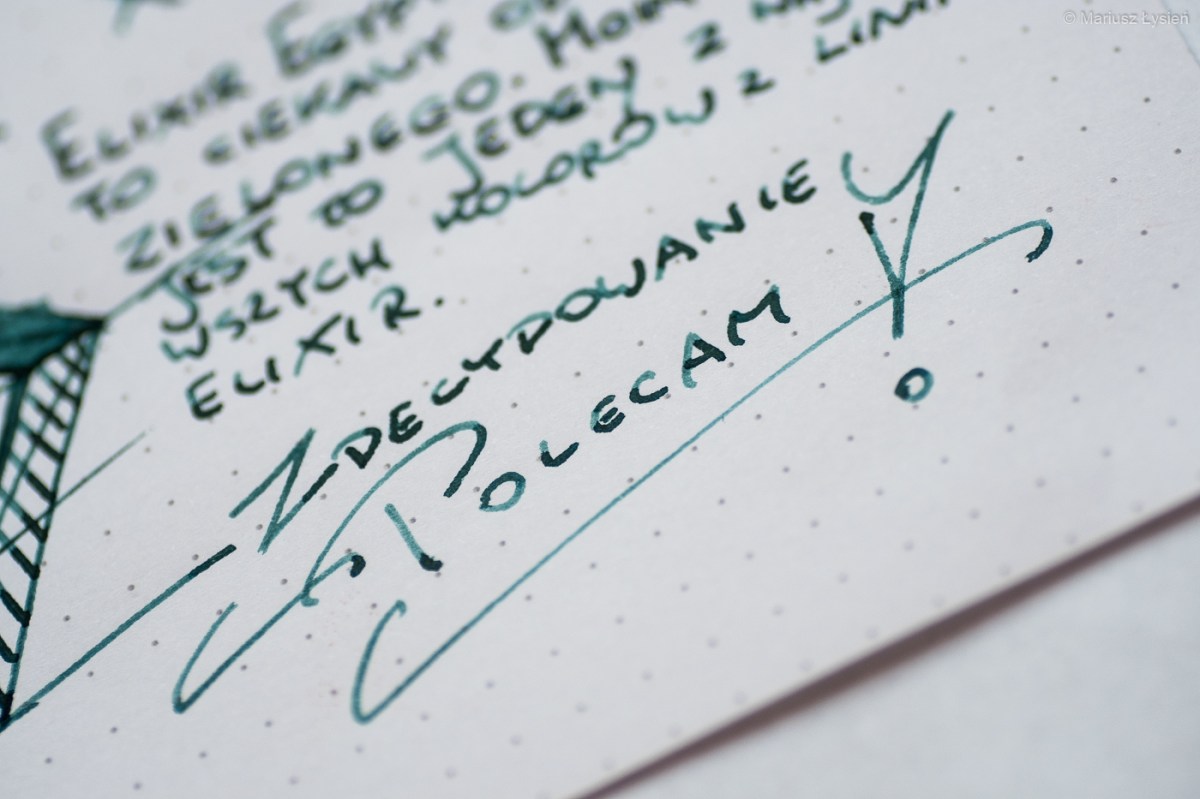 © Mariusz Łysień
ELIXIR
TO CIEKAWY
ZIELONEGO.
JEST TO JEDEN Z
WSZYCH KOLORÓW Z LINII
ELIXIR.
ZDECYDOWANIE
POLECAM !